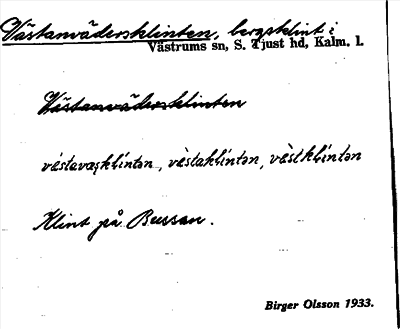 Västanvädersklinten, bergsklint i
Västrums sn, S. Tjust hd, Kalm. l.
Västanvädersklinten
vèstavasklíntən, vèstaklíntən, vèstklíntən
Klint på Bussan.
Birger Olsson 1933.